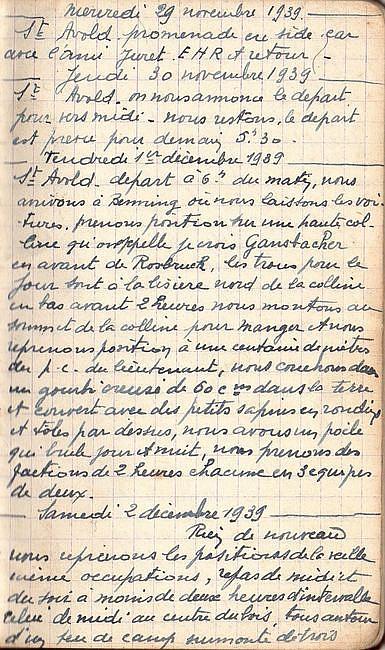 Mercredi 29 novembre 1939.
St Avold promenade en side-car
avec l'ami Juret. E.H.R et retour -
Jeudi 30 novembre 1939
St Avold on nous annonce le départ
pour vers midi - nous restons, le départ
est prévu pour demain 5h30 -
Vendredi 1er décembre 1939
St Avold - départ à 6h du matin, nous
arrivons à Benning où nous laissons les voi-
-tures, prenons position sur une haute col-
line qu'on appelle je crois Gansbacher
en avant de Rosbruck, les trous pour le
jour sont à la lisière nord de la colline
en bas avant 2 heures nous montons au
sommet de la colline pour manger et nous
reprenons position à une centaine de mètres
du p.c. du lieutenant, nous couchons dans
un gourbi creusé de 60 cms dans la terre
et couvert avec des petits sapins en rondins
et tôles par dessus, nous avons un poile
qui brule jour et nuit, nous prenons des
factions de 2 heures chacune en 3 équipes
de deux.
Samedi 2 décembre 1939
Rien de nouveau
nous reprenons les positions de la veille
même occupations, repas de midi et
du soir à moins de deux heures d'intervalle
celui de midi au centre du bois, tous autour
d'un feu de camp surmonté de trois